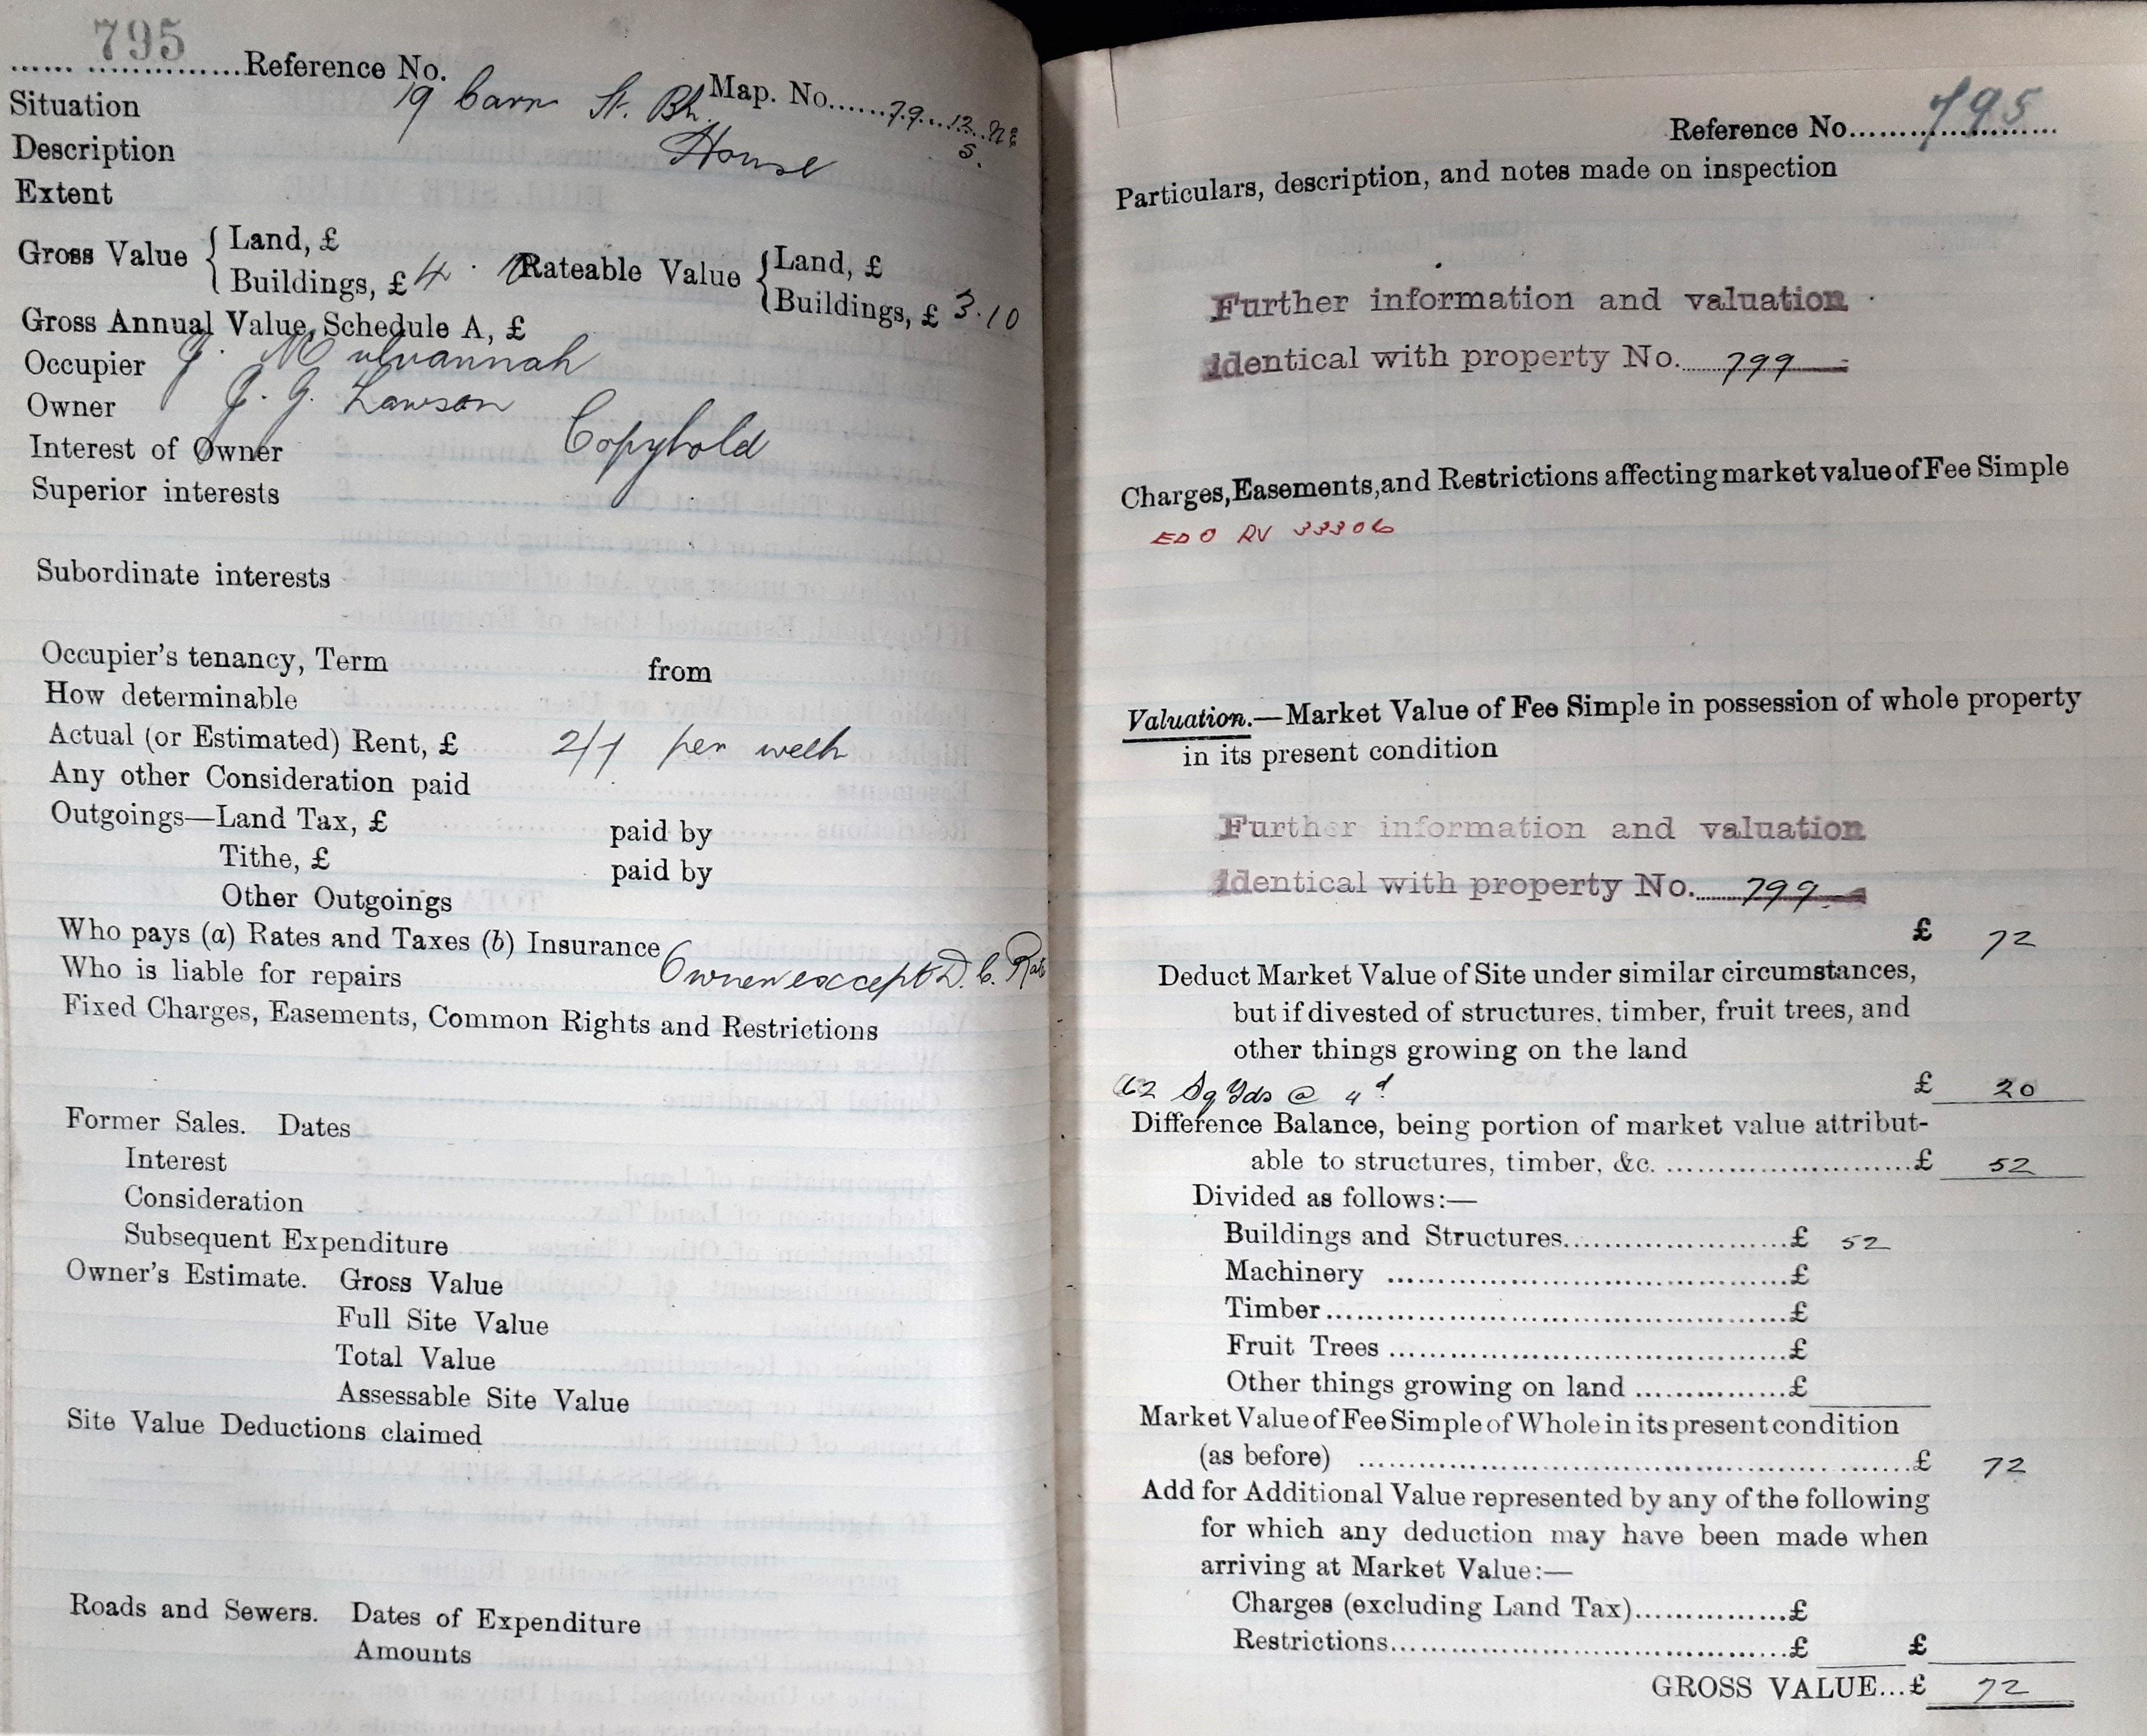 795
Reference No.
Situation 19 Carr St. Bh. Map. No. 79.12.NE
S.
Description House
Extent
Gross Value { Land, £
Buildings, £ 4 . Rateable Value { Land, £
Buildings, £ 3.10
Gross Annual Value, Schedule A, £
Occupier J. Mulvannah
Owner J. G. Lawson
Interest of Owner Copyhold
Superior interests
Subordinate interests
Occupier's tenancy, Term from
How determinable
Actual (or Estimated) Rent, £ 2/1 per week
Any other Consideration paid
Outgoings—Land Tax, £ paid by
Tithe, £ paid by
Other Outgoings
Who pays (a) Rates and Taxes (b) Insurance
Who is liable for repairs Owner except D. C. Rate
Fixed Charges, Easements, Common Rights and Restrictions
Former Sales. Dates
Interest
Consideration
Subsequent Expenditure
Owner's Estimate. Gross Value
Full Site Value
Total Value
Assessable Site Value
Site Value Deductions claimed
Roads and Sewers. Dates of Expenditure
Amounts
Reference No. 795
Particulars, description, and notes made on inspection
Further information and valuation
identical with property No. 799
Charges, Easements, and Restrictions affecting market value of Fee Simple
EDO RV 33306
Valuation.—Market Value of Fee Simple in possession of whole property
in its present condition
Further information and valuation
identical with property No. 799
£ 72
Deduct Market Value of Site under similar circumstances,
but if divested of structures, timber, fruit trees, and
other things growing on the land
Sq Yds @ 4d £ 20
Difference Balance, being portion of market value attribut-
able to structures, timber, &c. £ 52
Divided as follows:—
Buildings and Structures £ 52
Machinery £
Timber £
Fruit Trees £
Other things growing on land £
Market Value of Fee Simple of Whole in its present condition
(as before) £ 72
Add for Additional Value represented by any of the following
for which any deduction may have been made when
arriving at Market Value:—
Charges (excluding Land Tax) £
Restrictions £ £
GROSS VALUE... £ 72